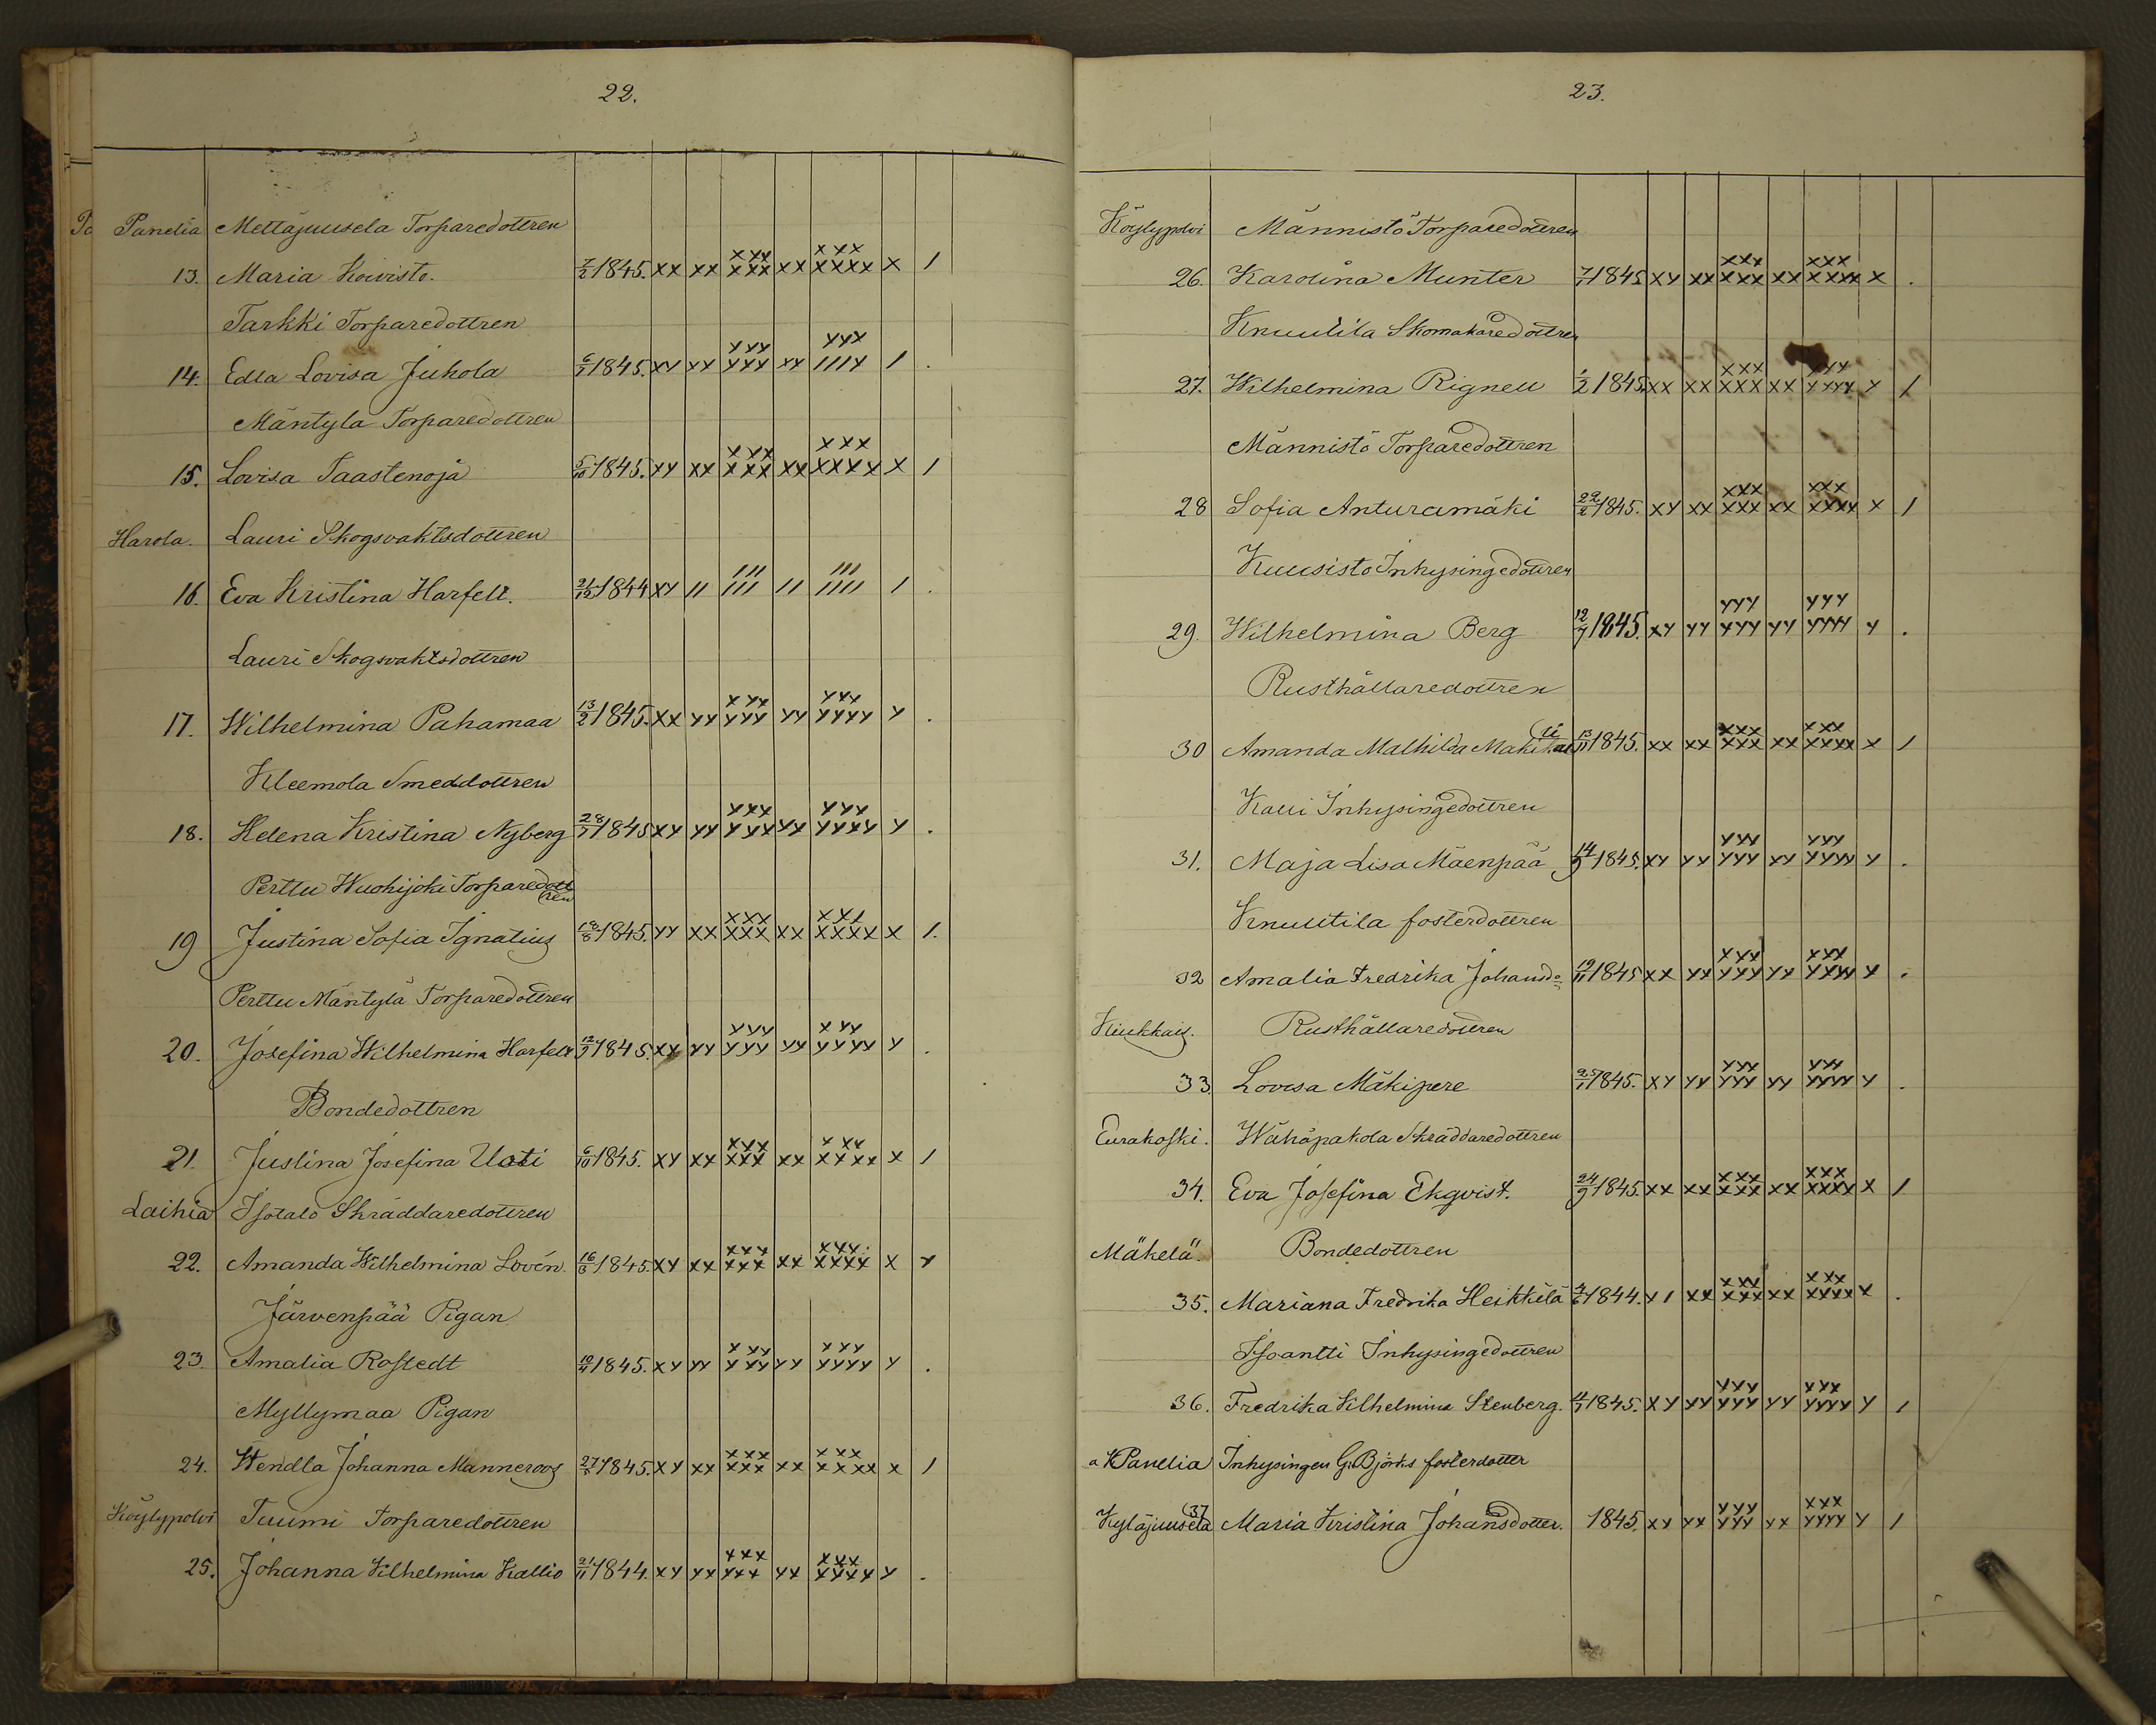 22.
Panelia Mettäjuusela Torparedottren
13. Maria Koivisto. 7/2 1845. xx xx xxx xxx xx xxx xxxx x /
Tarkki Torparedottren
14. Edla Lovisa Juhola 6/7 1845. xy xx yyy yyy xy yyx ///y / .
Mäntyla Torparedottren
15. Lovisa Taastenoja 5/10 1845. xy xx xyx xxx xx xxx xxxx x /
Harola. Lauri Skogsvaktsdottren
16. Eva Kristina Harfelt. 21/12 1844 xy // /// /// // /// //// / .
Lauri Skogsvaktsdottren
17. Wilhelmina Pahamaa 13/2 1845. xx yy xyx yyy yy yyy yyyy y .
Kleemola Smeddottren
18. Helena Kristina Nyberg 28/7 1845 xy yy yyx yyx yx yyy yyyy y .
Perttu Wuohijoki Torparedottren
19 Justina Sofia Ignatius 18/8 1845. yy xx xxx xxx xx xxx xxxx x /.
Perttu Mäntylä Torparedottren
20. Josefina Wilhelmina Harfelt 12/9 1845. xy yy yyy yyy yy xyy yyyy y .
Bondedottren
21. Justina Josefina Uoti 6/10 1845. xy xx xxx xxx xx xxx xxxx x /
Laihia Isotalo Skräddaredottren
22. Amanda Wilhelmina Lovén. 16/6 1845. xy xx xxx xxx xx xxx xxxx x y
Järvenpää Pigan
23. Amalia Rostedt 1845. xy yy xyy yxy yy yyy yyyy y .
Myllymaa Pigan
24. Hendla Johanna Manneroos 27/5 1845. xy xx xxx xxx xx xxx xxxx x /
Köylypolvi Tuumi Torparedottren
25. Johanna Vilhelmina Kallio 21/11 1844. xy yx xxx yxx yx xyx xyyy y .
23.
Köylypolvi Männistö Torparedottren
26. Karolina Munter 7/7 1845 xy xx xxx xxx xx xxx xxxx x .
Knuutila Skomakaredottren
27. Wilhelmina Rignell 1/2 1845. xx xx xxx xxx xx yyy xxyy y /
Männistö Torparedottren
28 Sofia Anturamäki 22/2 1845. xy xx xxx xxx xx xxx xxxx x /
Kuusisto Inhysingedottren
29. Wilhelmina Berg 12/7 1845. xy yy yyy yyy yy yyy yyyy y .
Rusthållaredottren
30 Amanda Mathilda 13/11 1845. xx xx xxx xxx xx xxx xxxx x /
Kaui Inhysingedottren
31. Maja Lisa Mäenpää 14/9 1845. xy yy yyy yyy yy yyy yyyy y .
Knuutila fosterdottren
32 Amalia Fredrika Johansd= 19/11 1845 xx yx xxx yyx yx xxx yxxx x .
Kiukkais. Rusthållaredottren
33. Lovisa Mäkipere 25/1 1845. xy yy yyy yyy yy yyy yyyy y .
Eurakoski. Wähäpakola Skräddaredottren
34. Eva Josefina Ekqvist. 24/9 1845. xx xx xxx xxx xx xxx xxxx x /
Mäkelä. Bondedottren
35. Mariana Fredrika Heikkilä 4/6 1844. y/ xx xxx xxx xx xxx xxxx x .
Isoantti Inhysingedottren
36. Fredrika Vilhelmina Stenberg. 4/7 1845. xy yy yyy yyy yy yyx yyyy y /
a K Panelia Inhysingen G. Björks fosterdotter
Kyläjuusela 37 Maria Kristina Johansdotter. 1845. xy yx yyy yyy yx xxx yyyy y /